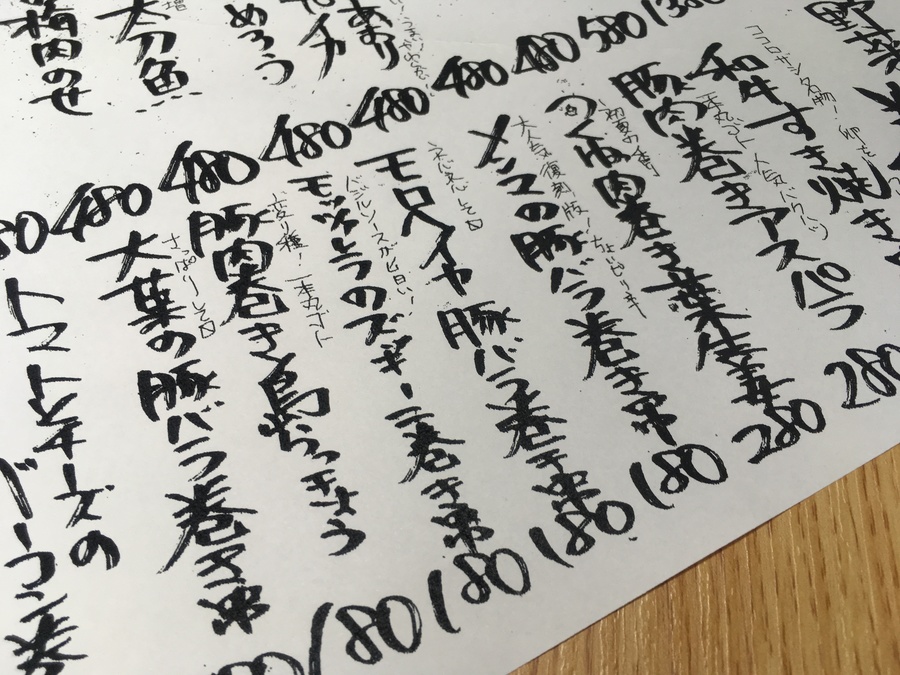 1380
580
480
480
480
480
480
480
めろう
太刀魚
肉のせ
野菜
和牛すき焼き
一本丸ゴト 人気バクハツ
豚肉巻きアスパラ 280
初夏の香り
つくね肉巻き葉生姜 280
大人気復刻版!
メンマの豚バラ巻き串 180
ネバネバして〼
モロヘイヤ豚バラ巻き串 180
バジルソースが旨い!
モッツァレラのズッキーニ巻き串 180
変り種! 一本丸ゴト
豚肉巻き島らっきょう 180
さっぱりして〼
大葉の豚バラ巻き串
トマトとチーズの
ベーコン巻